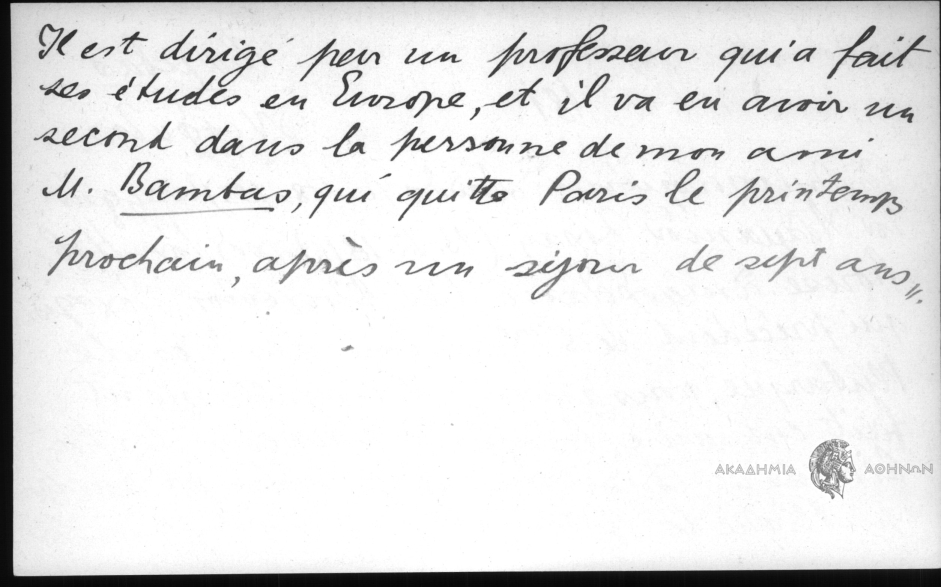 Il est dirigé par un professeur qui a fait
ses études en Europe, et il va en avoir un
second dans la personne de mon ami
M. Bambas, qui quitte Paris le printemps
prochain, après un séjour de sept ans".
ΑΚΑΔΗΜΙΑ ΑΘΗΝΩΝ